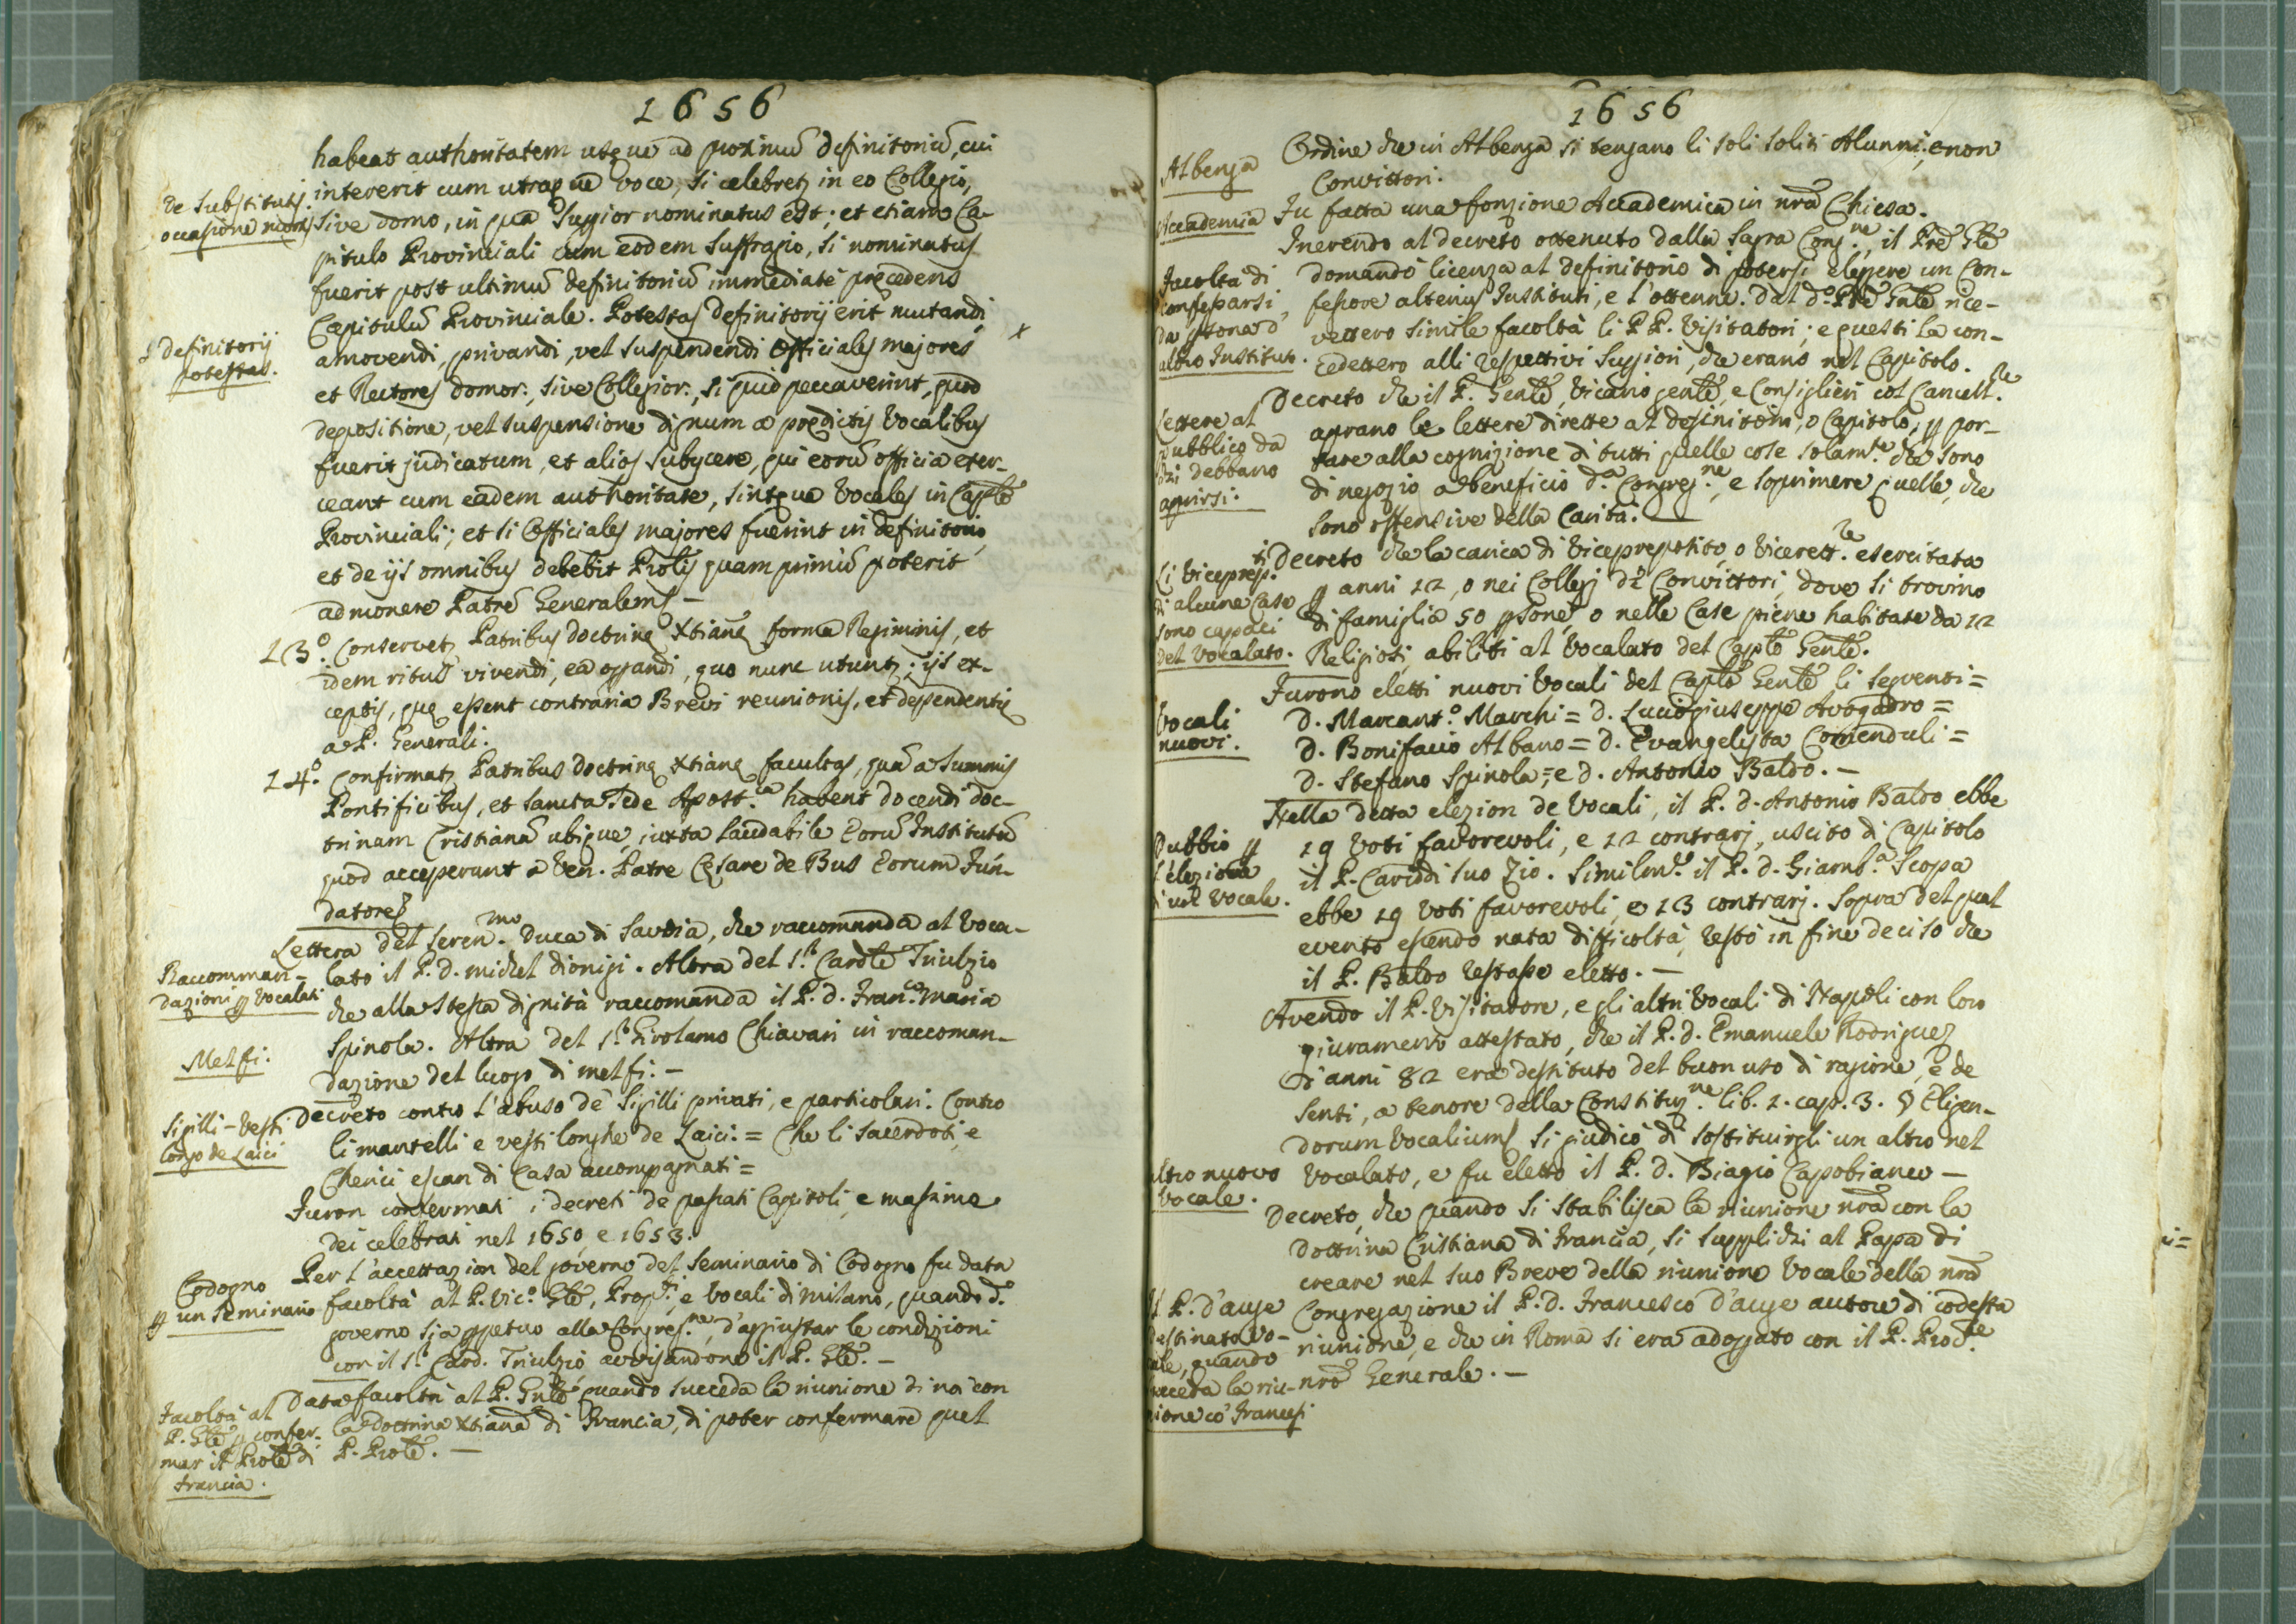 1656
habeat authoritatem usque ad proximũ definitoriũ, cui
intererit cum utraque voce, si celebretʒ in eo Collegio,
De Substitutis
occasione mortis
sive domo, in qua Suꝑior nominatus est; et etiam Ca-
pitulo Provinciali cum eodem suffragio, si nominatus
fuerit post ultimũ definitoriũ immediatè precedens
Capitulũ Provinciale. Potestas definitorij erit mutandi,
definitorij
potestas.
amovendi, privandi, vel suspendendi Officiales majores
x
et Rectores domor:, sive Collegior:, si quid peccaverint, quod
depositione, vel suspensione dignum a prędictis Vocalibus
fuerit judicatum, et alios subijcere, qui eorũ officia exer-
ceant cum eadem authoritate, sintque Vocales in Caplõ
Provinciali; et si Officiales majores fuerint in definitorio,
et de ijs omnibus debebit Prolis quam primũ poterit
admonere Patrẽ Generalem –
13.º Conservetʒ Patribus doctrinę Xtianę forma Regiminis, et
idem ritus vivendi, ea oꝑandi, quo nunc utuntʒ; ijs ex-
ceptis, quę essent contraria Brevi reunionis, et dependentię
a P. Generali.
14.º Confirmatʒ Patribus doctrinę Xtianę facultas, quã a Summis
Pontificibus, et Sancta Sede Apost.ca habent docendi doc-
trinam Cristianã ubique, iuxta laudabile Eorũ Institutũ
quod acceperunt à Ven. Patre Cęsare de Bus Eorum Fun-
datore
Lettera del Seren.mo Duca di Savoia, che raccomanda al Voca-
Raccoman-
dazioni ꝑ Vocalati
lato il P. D. Michel Dionigi. Altra del S.r Cardle Triulzio
che alla stessa dignità raccomanda il P. D. Fran.co Maria
Spinola. Altra del S.r Girolamo Chiavari in raccoman-
Melfi.
dazione del luogo di Melfi. –
Sigilli – Vesti
longo de Laici
Decreto contro l'abuso de Sigilli privati, e particolari. Contro
li mantelli e vesti longhe de Laici. = Che li Sacerdoti, e
Cherici escan di Casa accompagnati =
Furon confermati i decreti de passati Capitoli, e massime
dei celebrati nel 1650, e 1653.
Per l'accettazion del governo del Seminario di Codogno fu data
Codogno
ꝑ un Seminario
facoltà al P. Vic.º Gle, Prop.ti, e Vocali di Milano, quando d.º
governo sia ꝑpetuo alla Congreg.ne, d'aggiustar le condizioni
con il S.r Card. Triulzio avvisandone il P. Gle. –
Facoltà al
P. Gle ꝑ confer-
mar il Prole di
Francia.
Data facoltà al P. Gnle, quando succeda la riunione di noi con
la Dottrina Xtiana di Francia, di poter confermare quel
P. Prole. –
1656
Albenga
Ordine che in Albenga si tengano li soli soliti Alunni, e non
Convittori.
Accademia
Fu fatta una fonzione Accademica in nrã Chiesa.
Inerendo al decreto ottenuto dalla Sagra Cong.ne, il Prẽ Gle
Facoltà di
confessarsi
da ꝑsona d'
altro Instituto.
domandò licenza al definitorio di potersi elegere un Con-
fessore alterius Instituti, e l'ottenne. Dal d.º Prẽ Gnle rice-
vettero simile facoltà li PP. Visitatori; e questi la con-
cedettero alli respettivi Suꝑiori, che erano nel Capitolo.
Lettere al
pubblico da
chi debbano
aprirsi.
Decreto che il P. Genle, Vicario genle, e Consiglieri col Cancell.re
aprano le lettere dirette al definitorio, o Capitolo, ꝑ por-
tare alla cognizione di tutti quelle cose solam.te che sono
di negozio a beneficio d.a Congreg.ne, e soprimere quelle, che
sono offensive della Carità. –
Li Viceprep.ti
di alcune Case
sono capaci
del Vocalato.
Decreto che la carica di Viceprepósito, o Vicerett.re esercitata
ꝑ anni 12, o nei Collegj de Convittori, dove si trovino
di famiglia 50 ꝑsone, o nelle Case piene habitate da 12
Religiosi, abiliti al Vocalato del Caplo Genle.
Furono eletti nuovi Vocali del Caplo Genle li seguenti =
Vocali
nuovi.
D. Marcant.º Marchi = D. Luciogiuseppe Avogadro =
D. Bonifacio Albano = D. Evangelista Comenduli =
D. Stefano Spinola, = e D. Antonio Baldo. –
Nella detta elezion de Vocali, il P. D. Antonio Baldo ebbe
Dubbio ꝑ
l'elezione
d'un Vocale.
19 Voti favorevoli, e 12 contrarj, uscito di Capitolo
il P. Cariddi suo Zio. Similm.e il P. D. Giamb.a Scopa
ebbe 19 voti favorevoli, e 13 contrarj. Sopra del qual
evento essendo nata difficoltà, restò in fine deciso che
il P. Baldo restasse eletto. –
Avendo il P. Visitatore, e gli altri Vocali di Napoli con loro
giuramento attestato, che il P. D. Emanuele Rodriguez
d'anni 82 era destituto del buon uso di ragione, e de
senti, a tenore della Constituz.ne lib. 2. cap. 3. § Eligen-
dorum Vocalium, si giudicò di sostituirgli un altro nel
Altro nuovo
Vocale.
Vocalato, e fu eletto il P. D. Biagio Capobianco –
Decreto, che quando si stabilisca la riunione nrã con la
Dottrina Cristiana di Francia, si supplichi al Papa di
creare nel suo Breve della riunione Vocale della nrã
Il P. d'Auge
destinato Vo-
cale, quando
succeda la riu-
nione co' Francesi
Congregazione il P. D. Francesco D'Auge autore di codesta
riunione, e che in Roma si era adoprato con il P. Proc.re
nrõ Generale. –